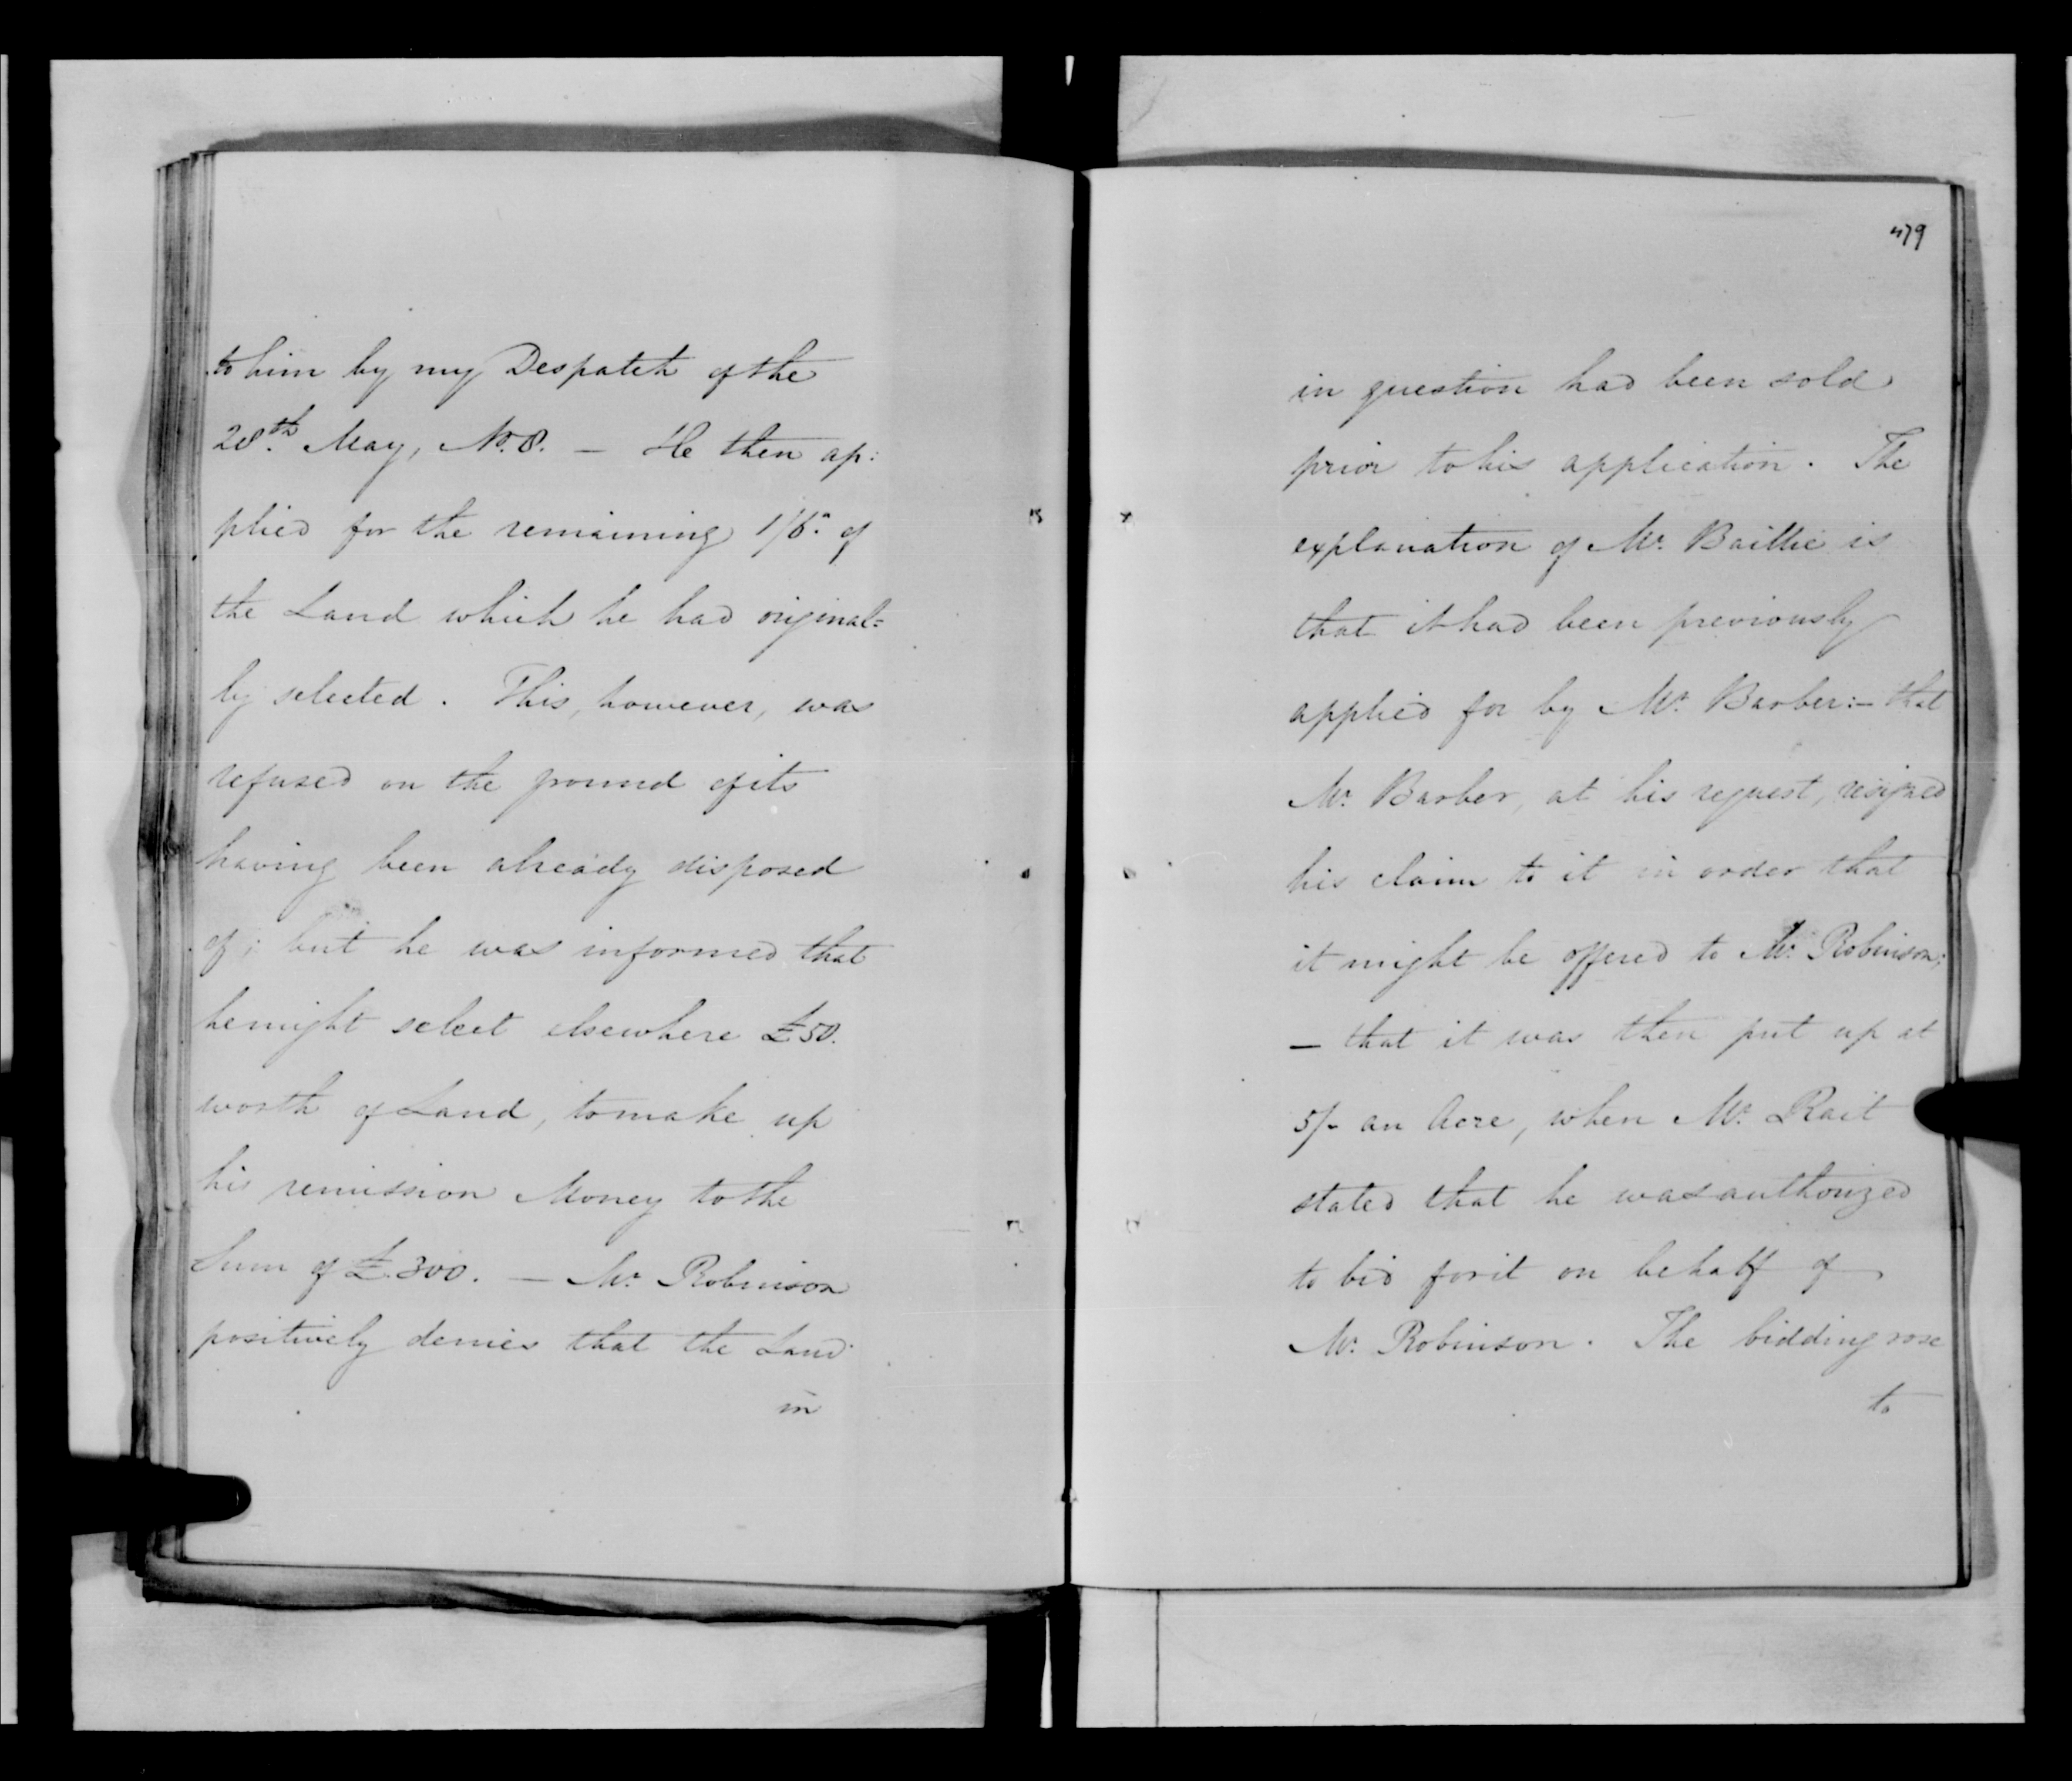 to him by my Despatch of the
28th. May, No. 8. — He then ap:
plied for the remaining 1/6. of
the Land which he had original=
ly selected. This, however, was
refused on the ground of its
having been already disposed
of; but he was informed that
he might select elsewhere £50.
worth of Land, to make up
his remission Money to the
Sum of £300. — Mr. Robinson
positively denies that the Land
in
479
in question had been sold
prior to his application. The
explanation of Mr. Baillie is
that it had been previously
applied for by Mr. Barber:— that
Mr. Barber, at his request, resigned
his claim to it in order that
it might be offered to Mr. Robinson;
— that it was then put up at
5/- an Acre, when Mr. Rait
stated that he was authorized
to bid for it on behalf of
Mr. Robinson. The bidding rose
to